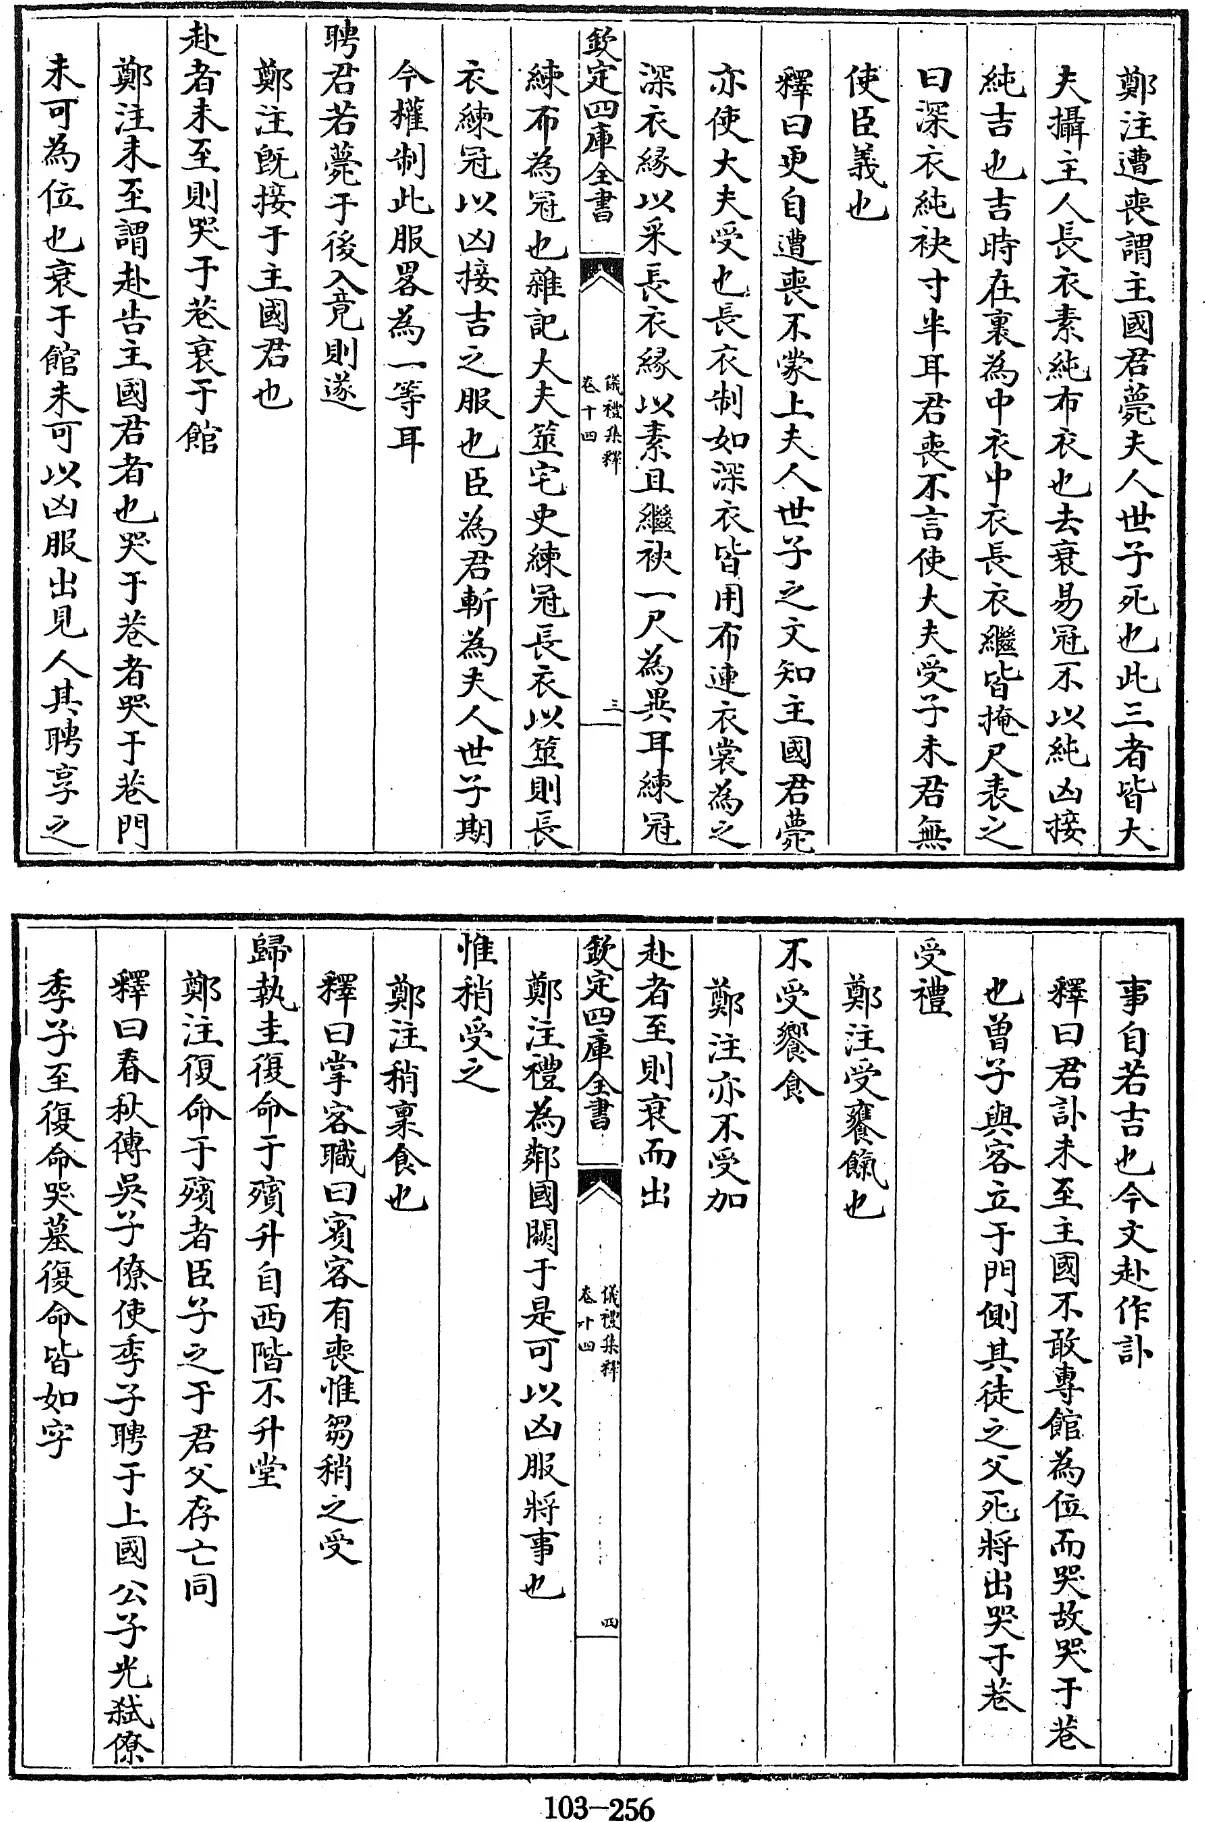 鄭注遭喪謂主國君薨夫人世子死也此三者皆大
夫攝主人長衣素純布衣也去衰易冠不以純凶接
純吉也吉時在裏為中衣中衣長衣繼皆掩尺表之
曰深衣純袂寸半耳君喪不言使大夫受子未君無
使臣義也
釋曰更自遭喪不蒙上夫人世子之文知主國君薨
亦使大夫受也長衣制如深衣皆用布連衣裳為之
深衣緣以采長衣緣以素且繼袂一尺為異耳練冠
欽定四庫全書
儀禮集釋
卷十四
三
練布為冠也雜記大夫筮宅史練冠長衣以筮則長
衣練冠以凶接吉之服也臣為君斬為夫人世子期
今權制此服畧為一等耳
聘君若薨于後入竟則遂
鄭注旣接于主國君也
赴者未至則哭于巷衰于館
鄭注未至謂赴告主國君者也哭于巷者哭于巷門
未可為位也衰于館未可以凶服出見人其聘享之
事自若吉也今文赴作訃
釋曰君訃未至主國不敢專館為位而哭故哭于巷
也曾子與客立于門側其徒之父死將出哭于巷
受禮
鄭注受饔餼也
不受饗食
鄭注亦不受加
赴者至則衰而出
欽定四庫全書
儀禮集釋
卷十四
四
鄭注禮為鄰國闕于是可以凶服將事也
惟稍受之
鄭注稍稟食也
釋曰掌客職曰賓客有喪惟芻稍之受
歸執圭復命于殯升自西階不升堂
鄭注復命于殯者臣子之于君父存亡同
釋曰春秋傳吳子僚使季子聘于上國公子光弑僚
季子至復命哭墓復命皆如字
103-256